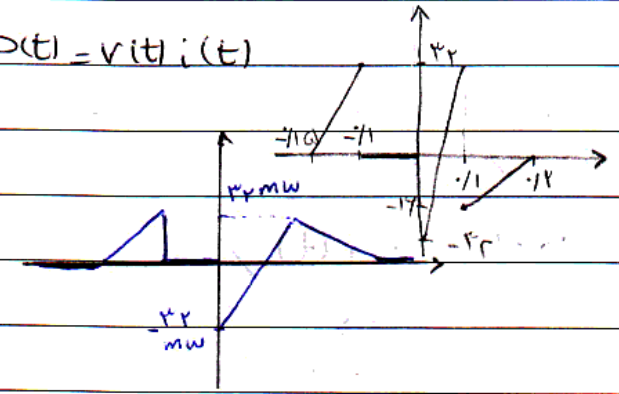 p(t) = v(t) i(t)
۳۲
-۰/۱۵ -۰/۱
۰/۱ ۰/۲
-۱۶
-۳۲
۳۲ mw
-۳۲
mw